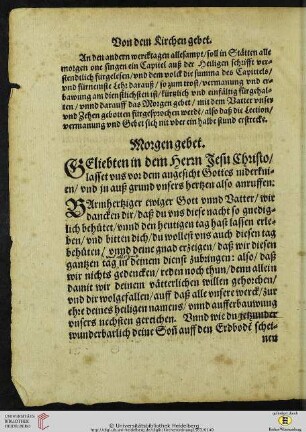 Von dem Kirchen gebet.
An den andern wercktagen allesampt/ soll in Stätten alle
morgen one singen ein Capitel auß der Heiligen schrifft ver-
stendtlich fürgelesen/ vnd dem volck die summa des Capitels/
vnd fürnemste Lehr darauß/ so zum trost/ vermanung vnd er-
bawung am dienstlichsten ist/ fürtzlich vnd einfältig fürgehal-
ten/ vnnd darauff das Morgen gebet/ mit dem Vatter vnser
vnd Zehen gebotten fürgesprochen werde/ also daß die Lection/
vermanung vnd Gebet sich nit vber ein halbe stund erstrecke.
Morgen gebet.
GEliebten in dem Herrn Jesu Christo/
lasset vns vor dem angesicht Gottes niderkni-
en/ vnd jn auß grund vnsers hertzen also anruffen:
BArmhertziger ewiger Gott vnnd Vatter/ wir
dancken dir/ daß du vns diese nacht so gnedig-
lich behütet/ vnnd den heutigen tag hast lassen erle-
ben/ vnd bitten dich/ du wollest vns auch diesen tag
behüten/ vnnd deine gnad erzeigen/ daß wir diesen
gantzen tag in deinem dienst zubringen: also/ daß
wir nichts gedencken/ reden noch thun/ denn allein
damit wir deinem vätterlichen willen gehorchen/
vnd dir wolgefallen/ auff daß alle vnsere werck/ zur
ehre deines heiligen namens/ vnnd aufferbawung
vnsers nechsten gereichen. Vnnd wie du jetzunder
wunderbarlich deine Son̄ auff den Erdbodē schei-
nen
UNIVERSITÄTS-
BIBLIOTHEK
HEIDELBERG
© Universitätsbibliothek Heidelberg